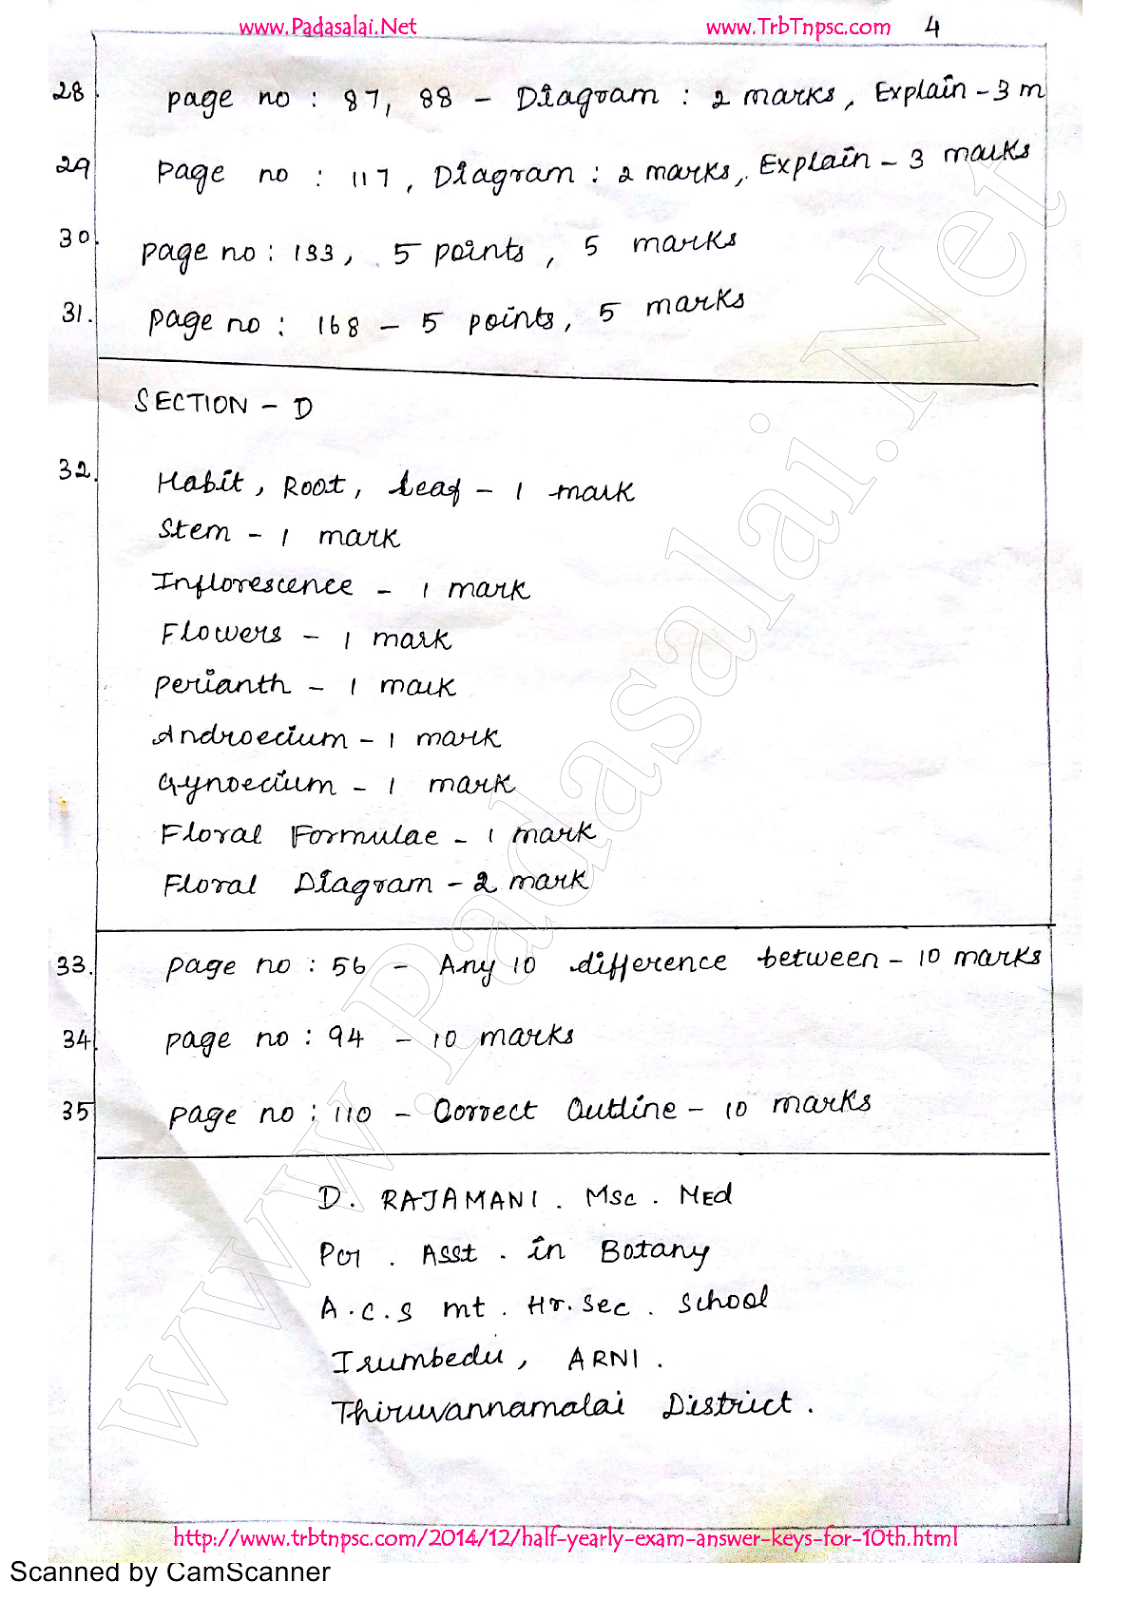 www.Padasalai.Net www.TrbTnpsc.com 4
28. page no : 87, 88 - Diagram : 2 marks, Explain - 3 m
29 Page no : 117, Diagram : 2 marks, Explain - 3 marks
30. page no : 133, 5 points, 5 marks
31. page no : 168 - 5 points, 5 marks
SECTION - D
32. Habit, Root, Leaf - 1 mark
Stem - 1 mark
Inflorescence - 1 mark
Flowers - 1 mark
Perianth - 1 mark
Androecium - 1 mark
Gynoecium - 1 mark
Floral Formulae - 1 mark
Floral Diagram - 2 mark
33. page no : 56 - Any 10 difference between - 10 marks
34. page no : 94 - 10 marks
35 page no : 110 - Correct Outline - 10 marks
D. RAJAMANI. Msc. MEd
PG. Asst. in Botany
A.C.S mt. Hr. Sec. School
Irumbedu, ARNI.
Thiruvannamalai District.
www.Padasalai.Net
http://www.trbtnpsc.com/2014/12/half-yearly-exam-answer-keys-for-10th.html
Scanned by CamScanner